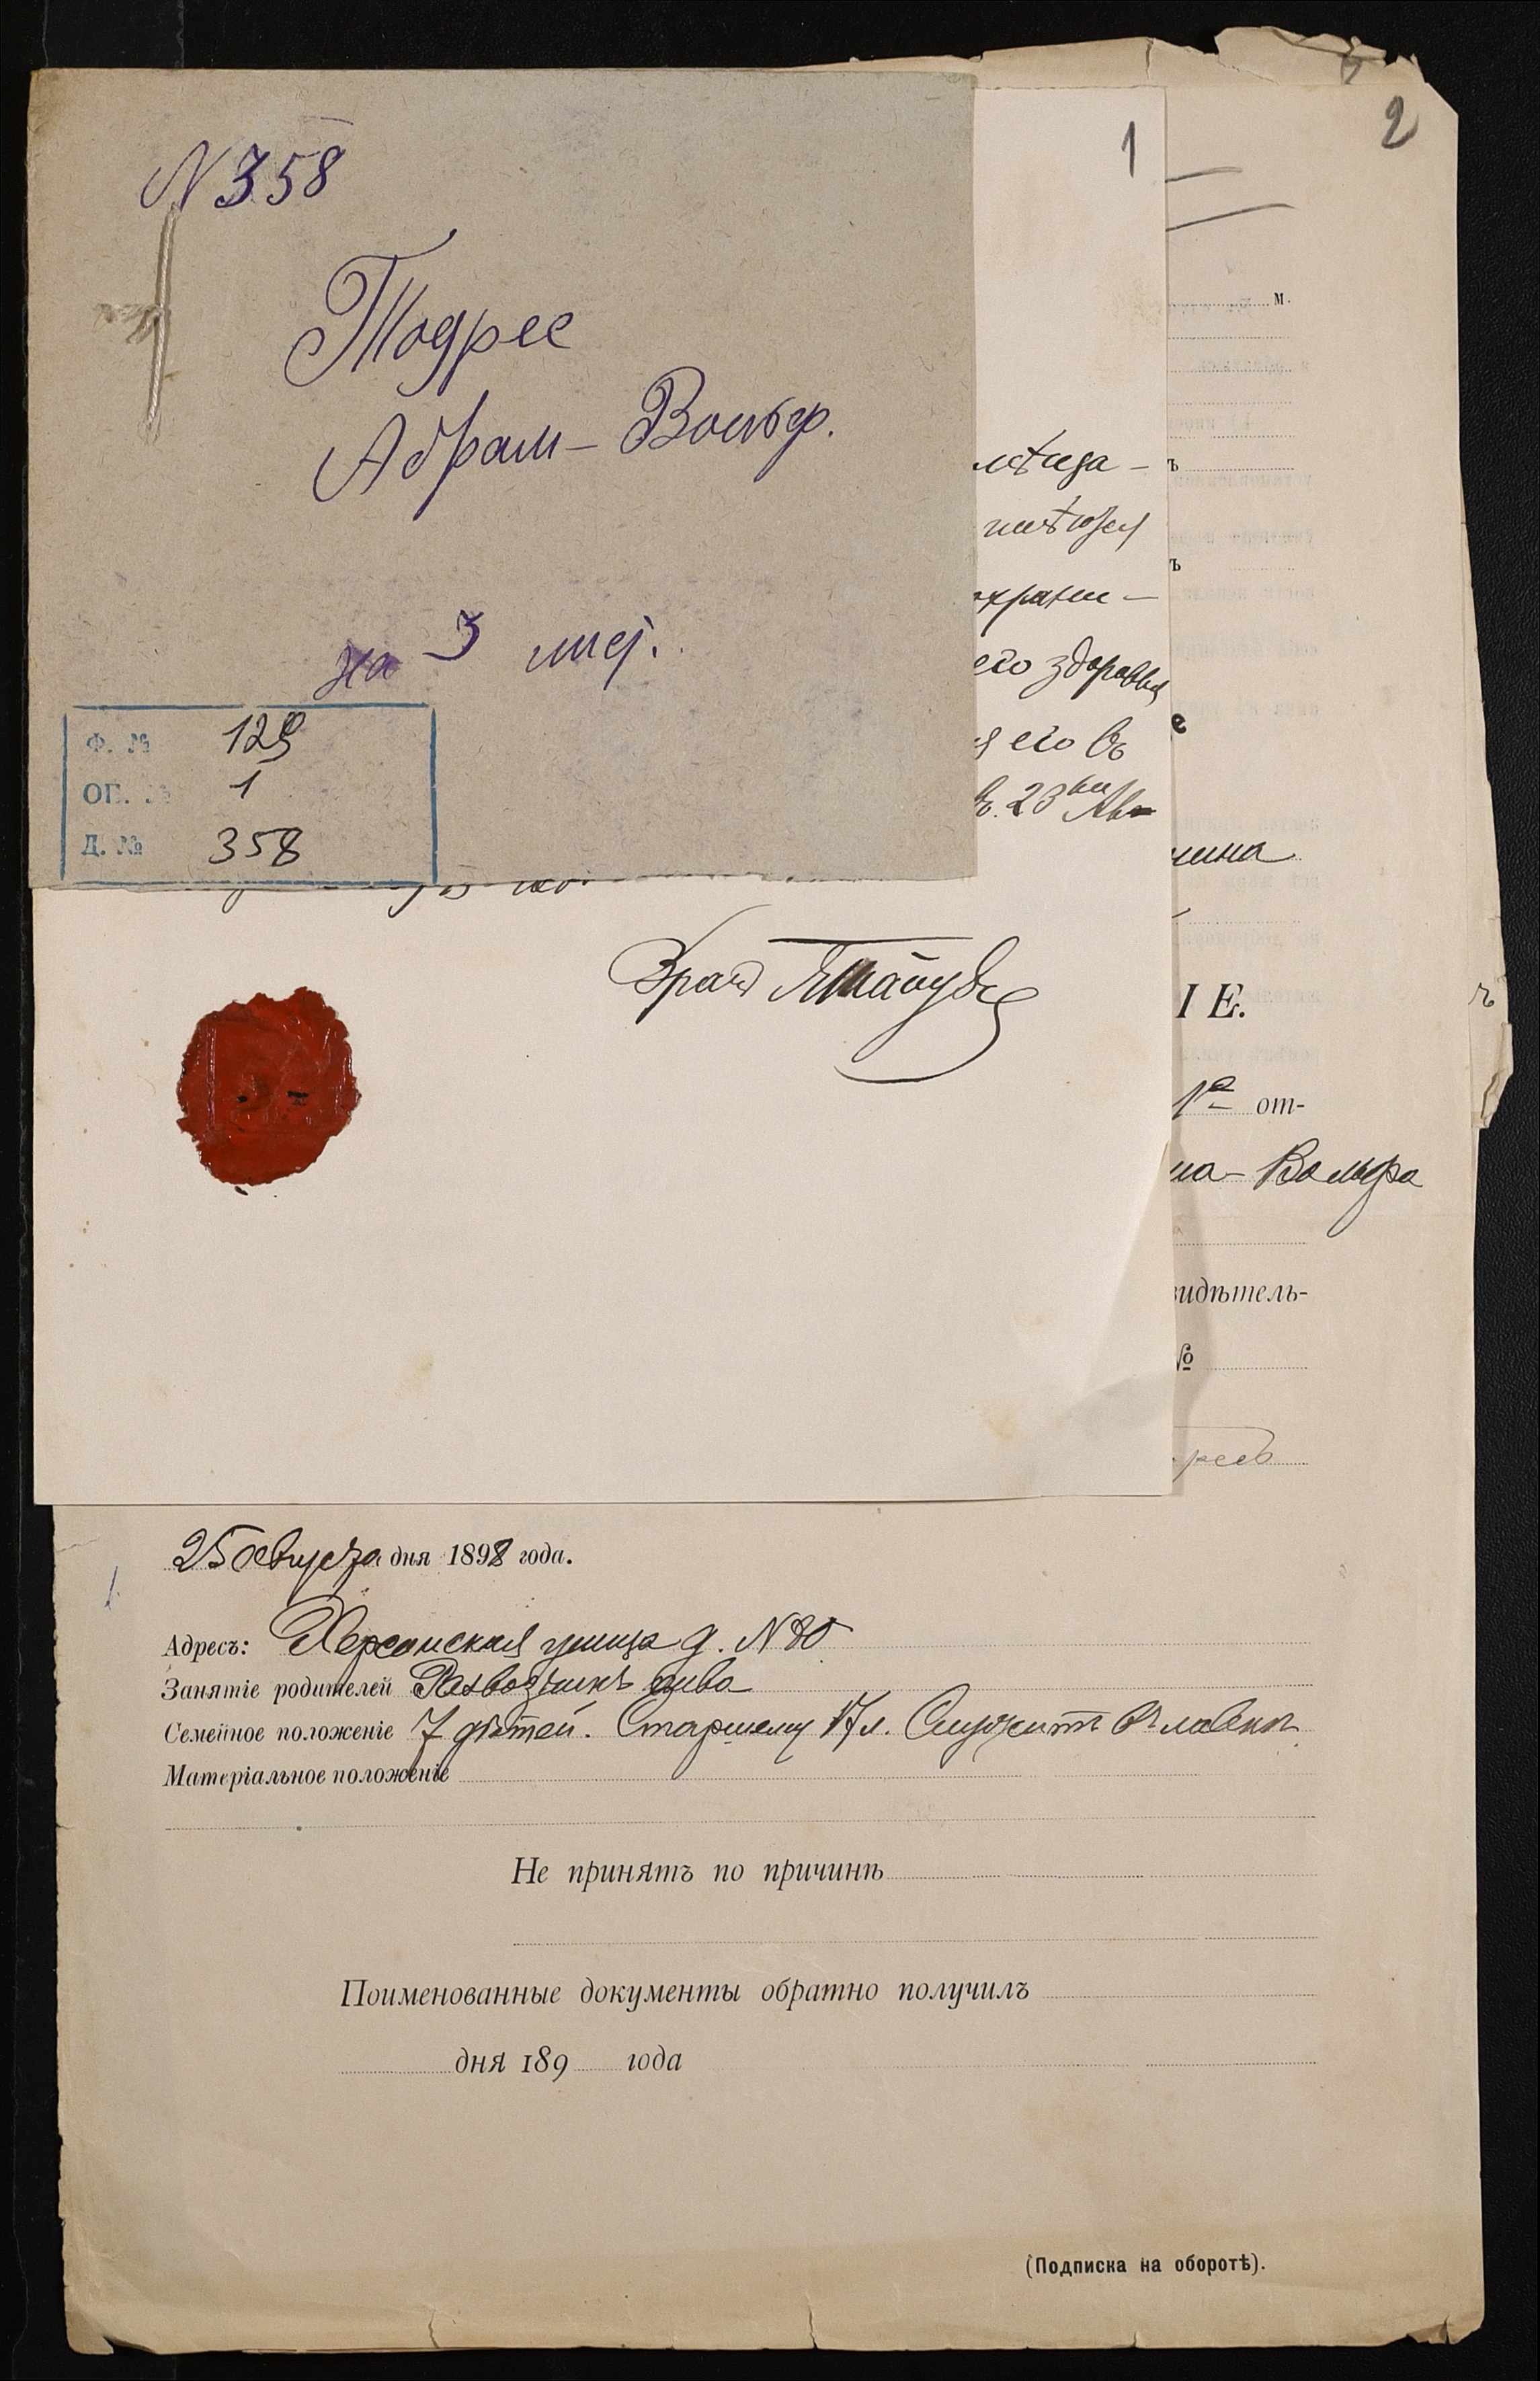 N 358
Тодрес
Абрам- Вольф.
на 3 лист.
Ф. № 129
ОП. № 1
Д. № 358
1
2
м.
ъ
его здоровья
я его въ
23 Ав-
Врачъ
е
IE.
1е от-
ма- Вольфа
видѣтель-
№
25 августа дня 1898 года.
Адресъ: Херсонская улица д. N 80
Занятіе родителей Развозчикъ пива
Семейное положеніе 7 дѣтей. Старшему 17 л. Служитъ въ лавкѣ
Матеріальное положеніе
Не принятъ по причинѣ
Поименованные документы обратно получилъ
дня 189 года
(Подписка на оборотѣ).